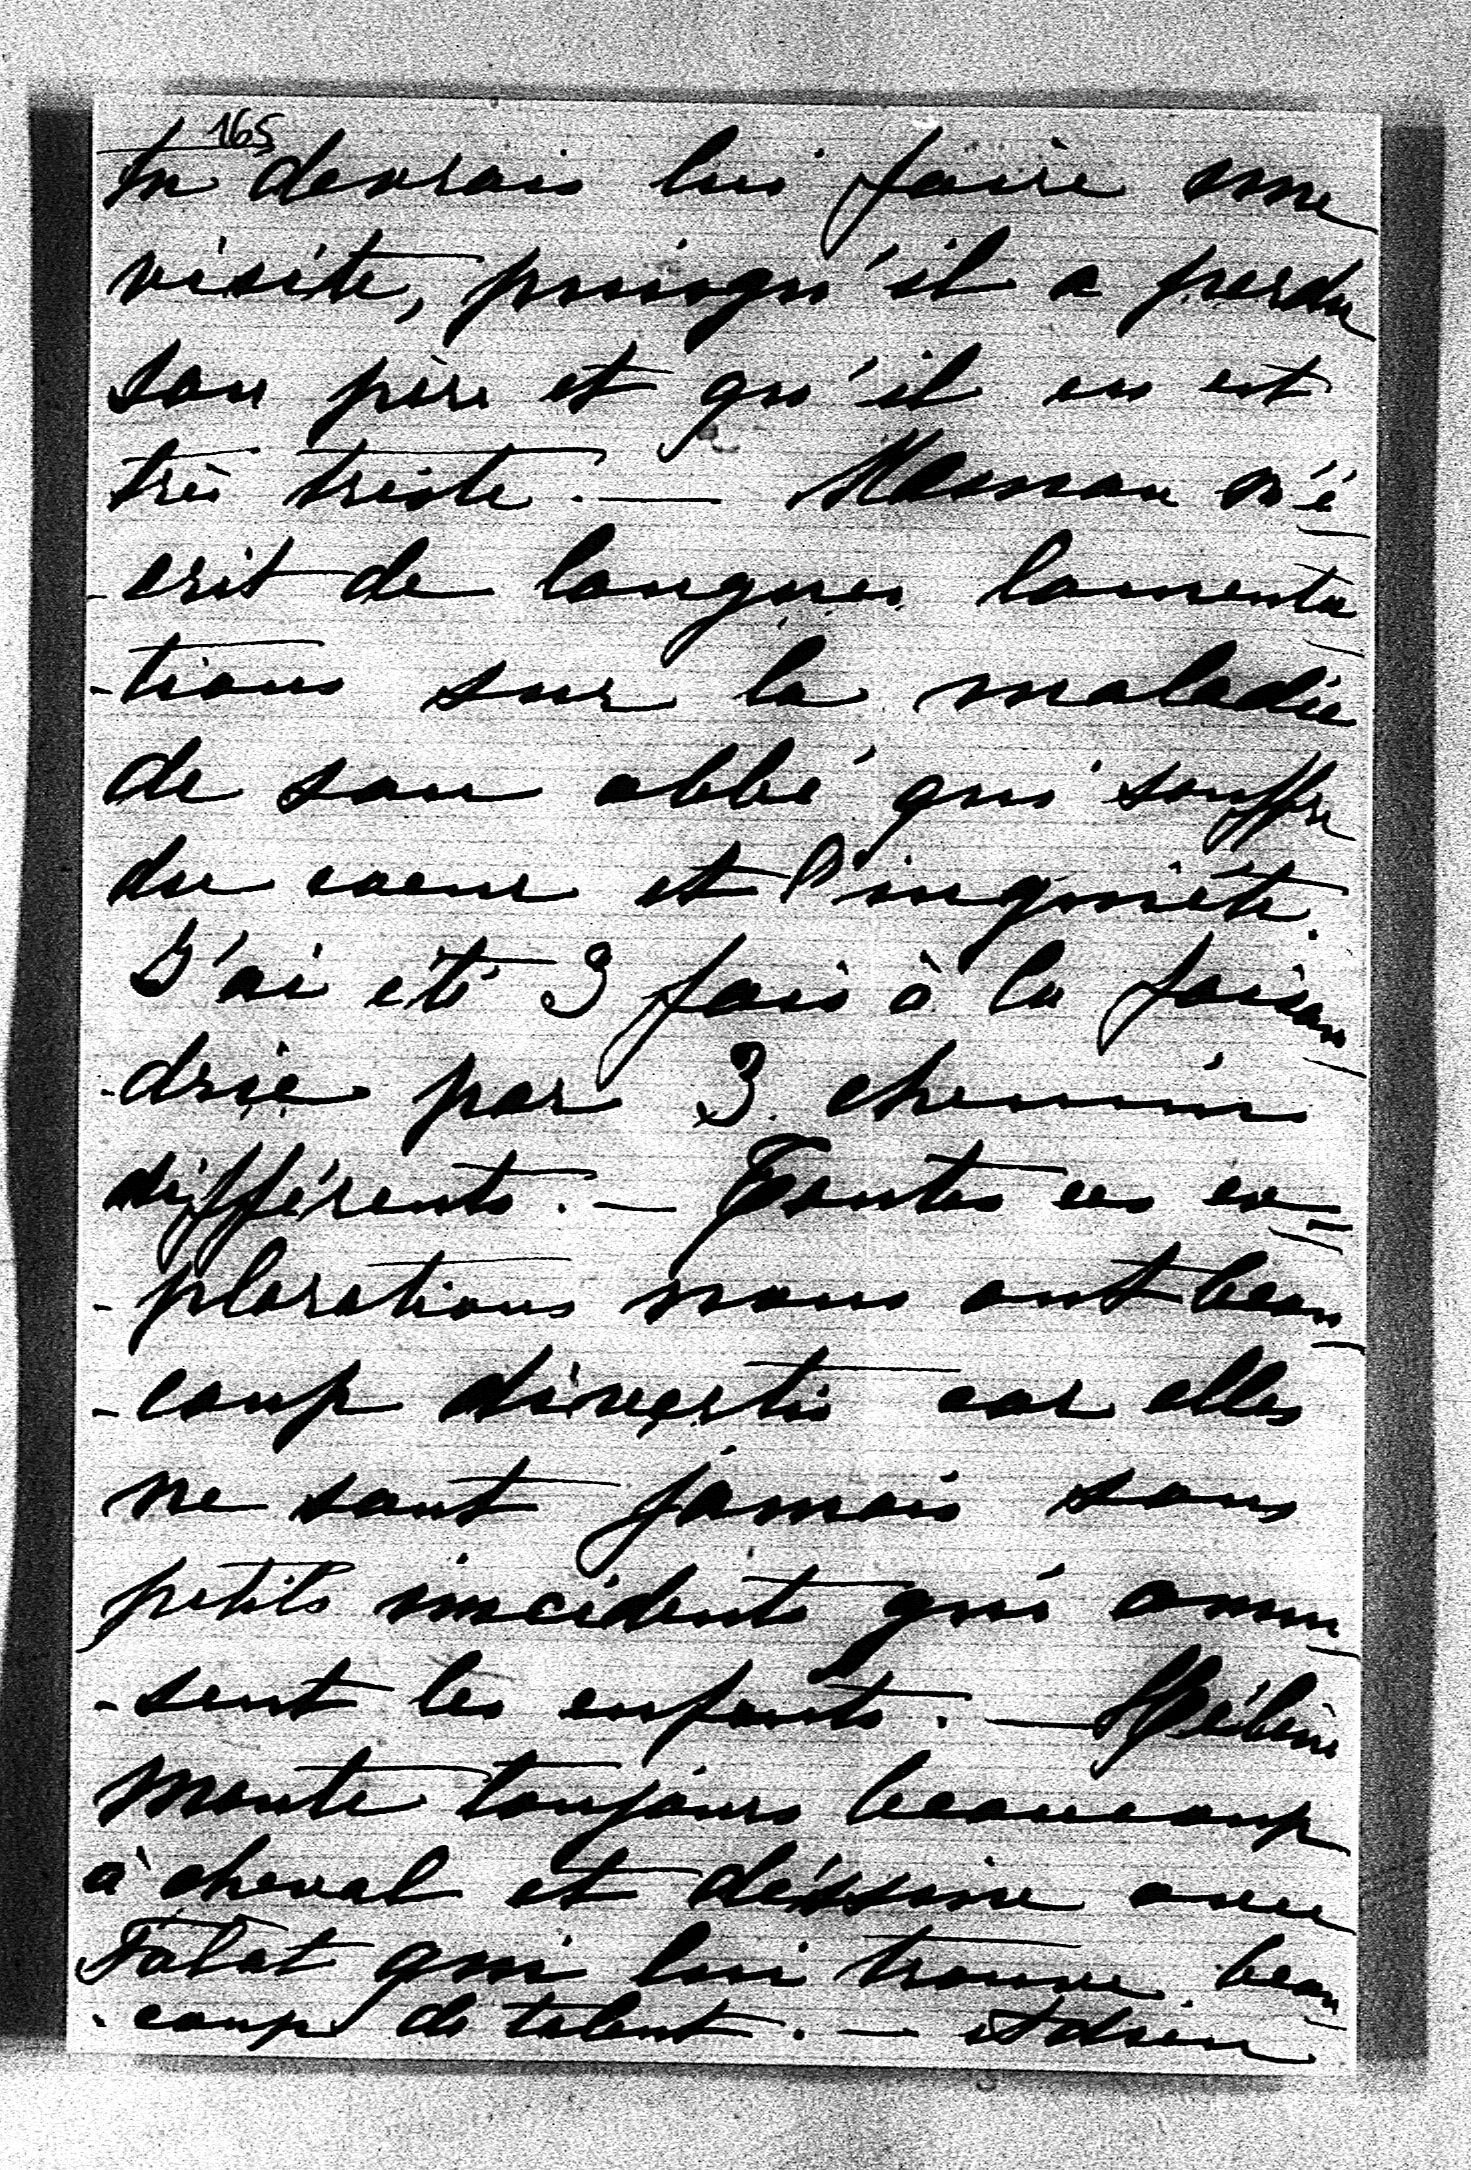 165
tu devrais lui faire une
visite, puisqu'il a perdu
son père et qu'il en est
très triste. — Maman m'é
-crit de longues lamenta
-tions sur la maladie
de son abbé qui souffre
du coeur et l'inquiète.
J'ai été 3 fois à la faisan
-drie par 3 chemins
différents. — Toutes ces ex-
-plorations nous ont beau
-coup divertis car elles
ne sont jamais sans
petits incidents qui amu
-sent les enfants. — Hélène
monte toujours beaucoup
à cheval et déssine avec
Tatat qui lui trouve beau
-coup de talent. — Adrien